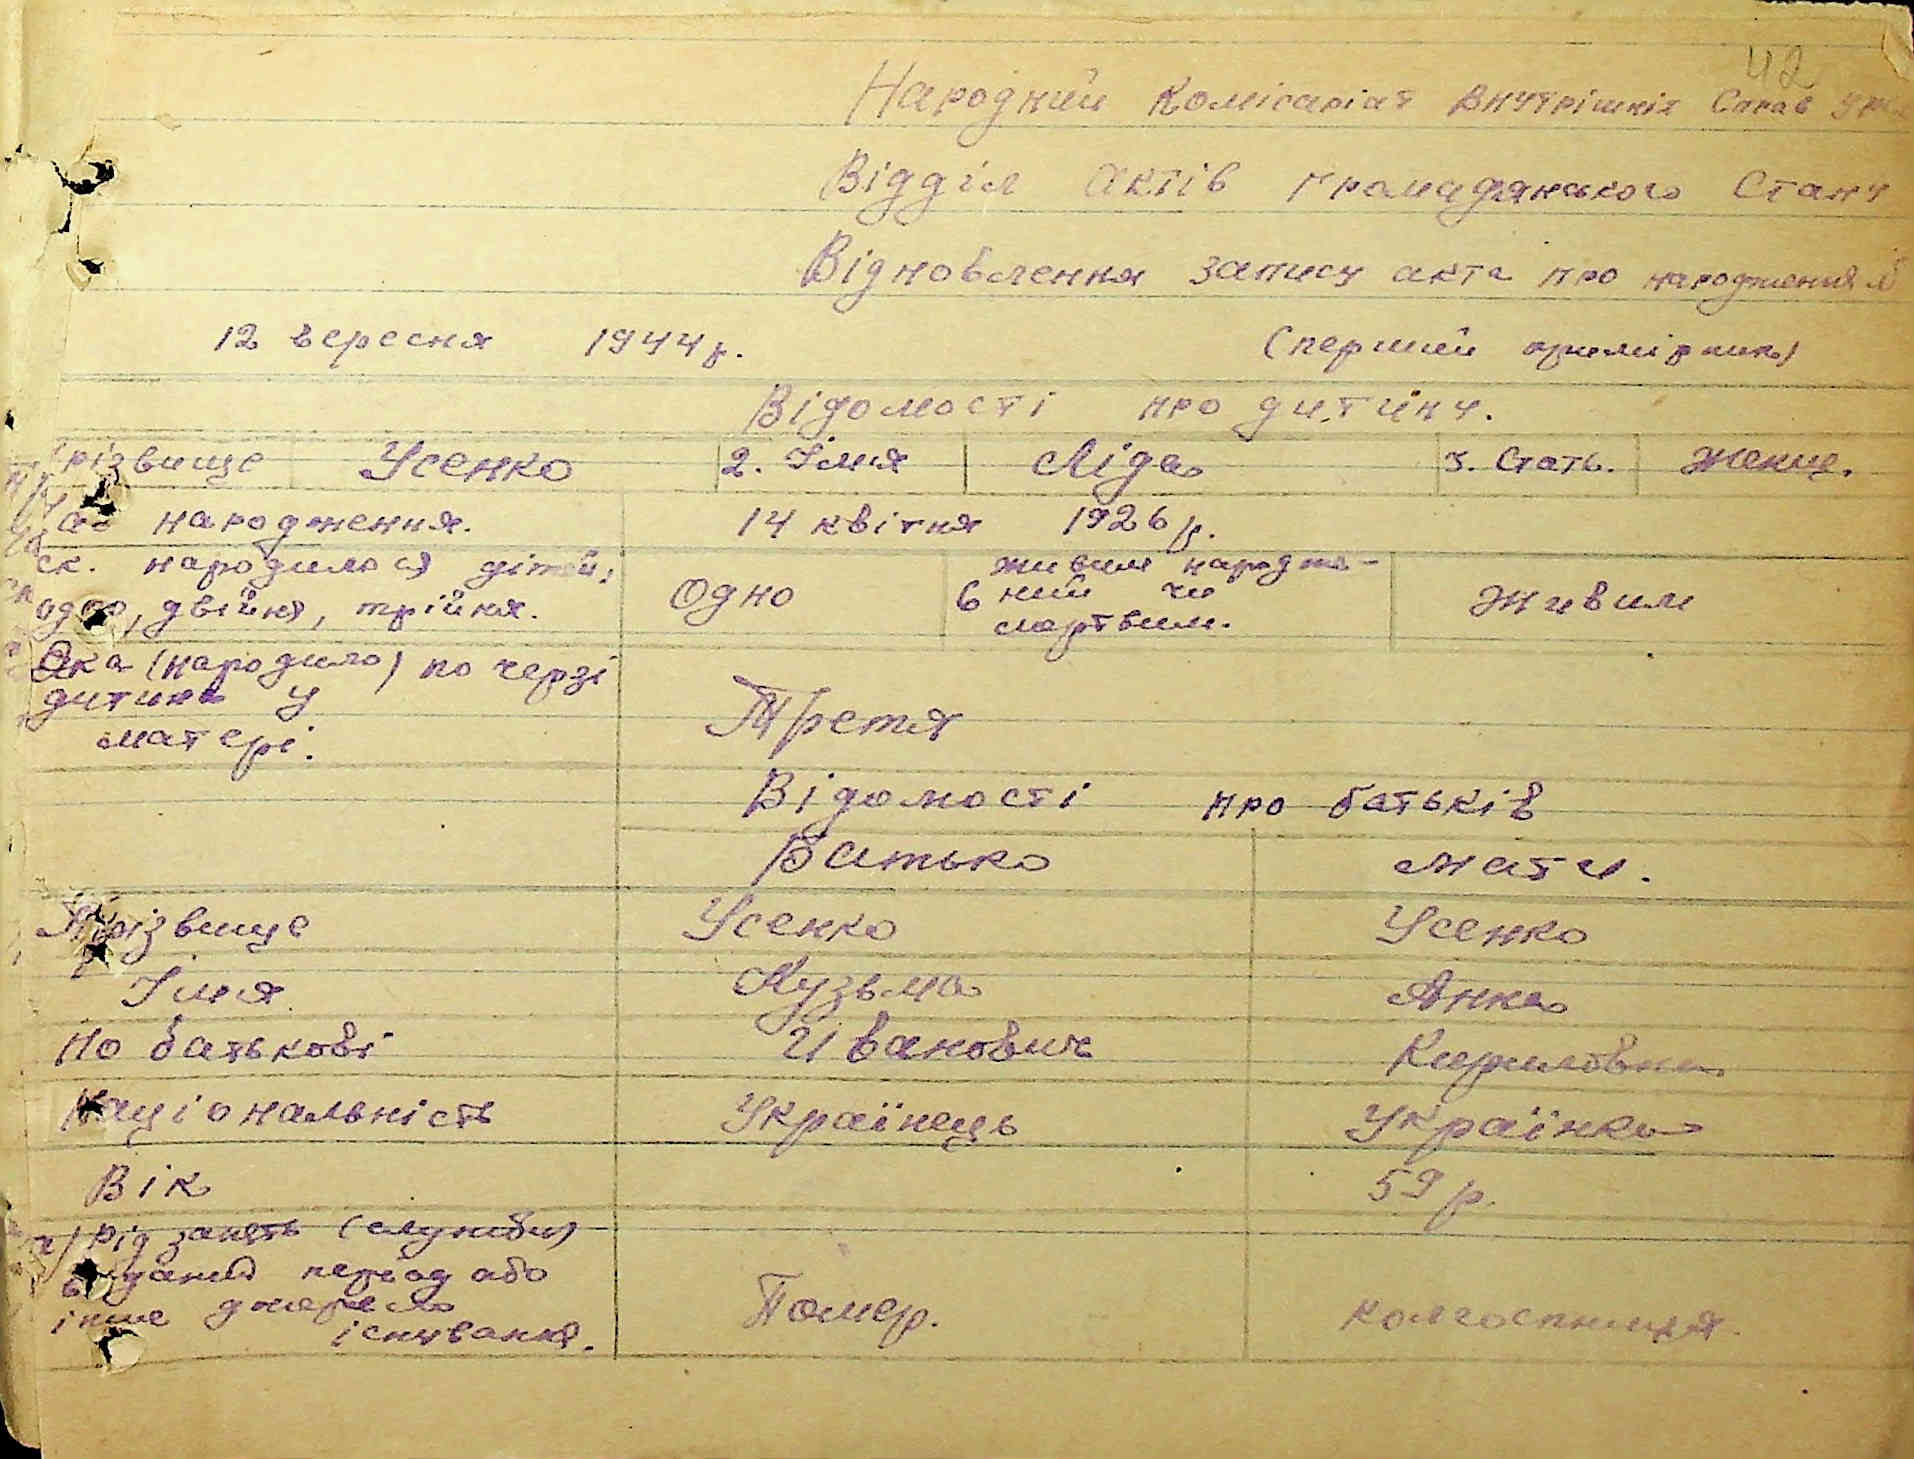 42
Народний Комісаріат Внутрішніх Справ
Відділ Актів Громадянського Стану
Відновлення запису акта про народження
12 вересня 1944 р. (перший примірник)
Відомості про дитину.
Прізвище Усенко 2. Імя Ліда 3. Стать. Жіноч.
народження. 14 квітня 1926 р.
ск. народилося дітей,
одно, двійня, трійня. Одно 6 живим народже-
ний чи
мертвим. Живим
Яка (народило) по черзі
дитина у
матері. Третя
Відомості про батьків
Батько Мати.
Прізвище Усенко Усенко
Імя Кузьма Анна
По батькові Иванович Кириловна
Національність Українець Українка
Вік 59 р.
а) рід занять (служби)
в даний період або
інше джерело
існування. Помер. колгоспниця.